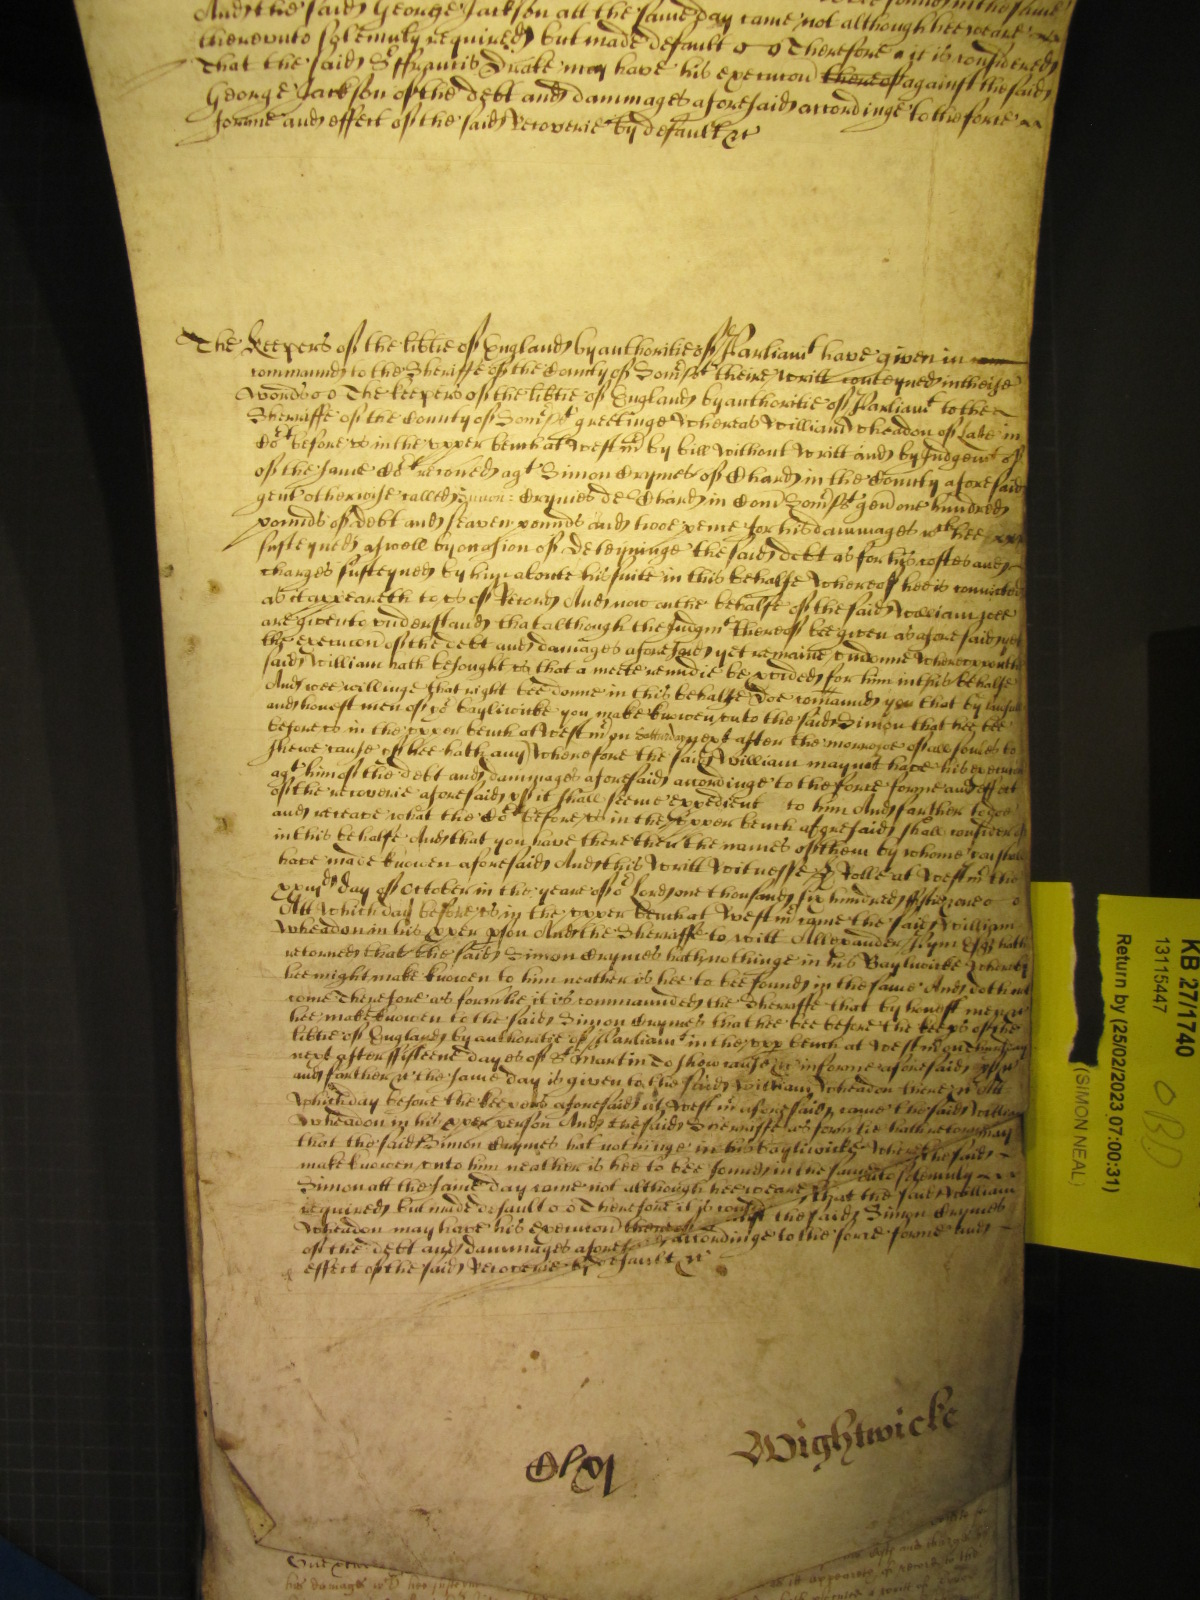 And the said George Jackson att the same day came not although hee weare
therevnto solemnly required but made default Therefore it is considered
that the said Sr ffrancis Drake may have his execucon thereof against the said
George Jackson of the debt and dammages aforesaid accordinge to the force
forme and effect of the said Recoverie by default &c
The Keepers of the libtie of England by authoritie of Parliamt have given in
commaund to the Sheriffe of the County of Somst theire writt conteyned in theise
words The Keepers of the libtie of England by authoritie of Parliamt to the
Sherriffe of the County of Somst greetinge Whereas William Wheadon of late in
Cort before vs in the vpper bench at Westmr by bill without writt and by Judgemt of
the same Cort recovered agt Simon Crymes of Chard in the County aforesaid
gent otherwise called Simon Crymes de Chard in Com Somst gen one hundred
pounds of debt and seaven pounds and twoe pence for his dammages wch hee
susteyned aswell by occasion of deteyninge the said debt as for his costes and
charges susteyned by him aboute his suite in this behalfe Whereof hee is convicted
as it appeareth to vs of Record And now on the behalfe of the said William wee
are given to vnderstand that although the Judgmt thereof bee given as aforesaid yet
the execucon of the debt and damages aforesaid yet remaine vndonne Wherevpon the
said William hath besought vs that a meete remidie be pvided for him in this behalfe
And wee willinge that right bee donne in this behalfe doe comaund you that by
and honest men of yor bayliwicke you make knowen vnto the said Simon that hee bee
before vs in the vpper bench at Westmr on next after the morrow of all soules to
shewe cause if hee hath any Wherefore the said William may not have his execucon
agt him of the debt and dammages aforesaid accordinge to the force forme and effect
of the recoverie aforesaid if it shall seeme expedient to him And farther to doe
and receave what the Cort before vs in the vpper bench aforesaid shall consider
in this behalfe And that you have there then the names of them by whome you shall
have made knowen aforesaid And this writt Wittnesse H Rolle at Westmr the
xxiijd day of October in the yeare of or Lord one thousand six hundred fiftie one
Att which day before vs in the vpper bench at Westmr came the said William
Wheadon in his pper pson And the Sherriffe to witt Allexander Pym Esqr hath
retorned that the said Simon Crymes hath nothinge in his Bayliwicke whereby
hee might make knowen to him neather is hee to bee found in the same And doth not
come Therefore as formlie it is commaunded the Sherriffe that by honest men &c
hee make knowen to the said Simon Crymes that hee bee before the keeps of the
libtie of England by authoritie of Parliamt in the vpp bench at Westmr on
next after fifteene dayes of St Martin to show cause &c in forme aforesaid if &c
and farther &c the same day is given to the said William Wheadon there &c Att
which day before the keepors aforesaid at Westmr aforesaid came the said William
Wheadon in his pper person And the said Sherriffe as formlie hath retorned
that the said Simon Crymes hat nothinge in his bayliwicke whereby
make knowen vnto him neather is hee to bee found in the same the said
Simon att the same day came not although hee weare solemnly
required but made default Therefore it is that the said William
Wheadon may have his execucon thereof the said Simon Crymes
of the debt and dammages accordinge to the force forme and
effect of the said Recoverie by default &c
Wightwicke
KB 27/1740
13115447
Return by (25/02/2023 07:00:31)
(SIMON NEAL)